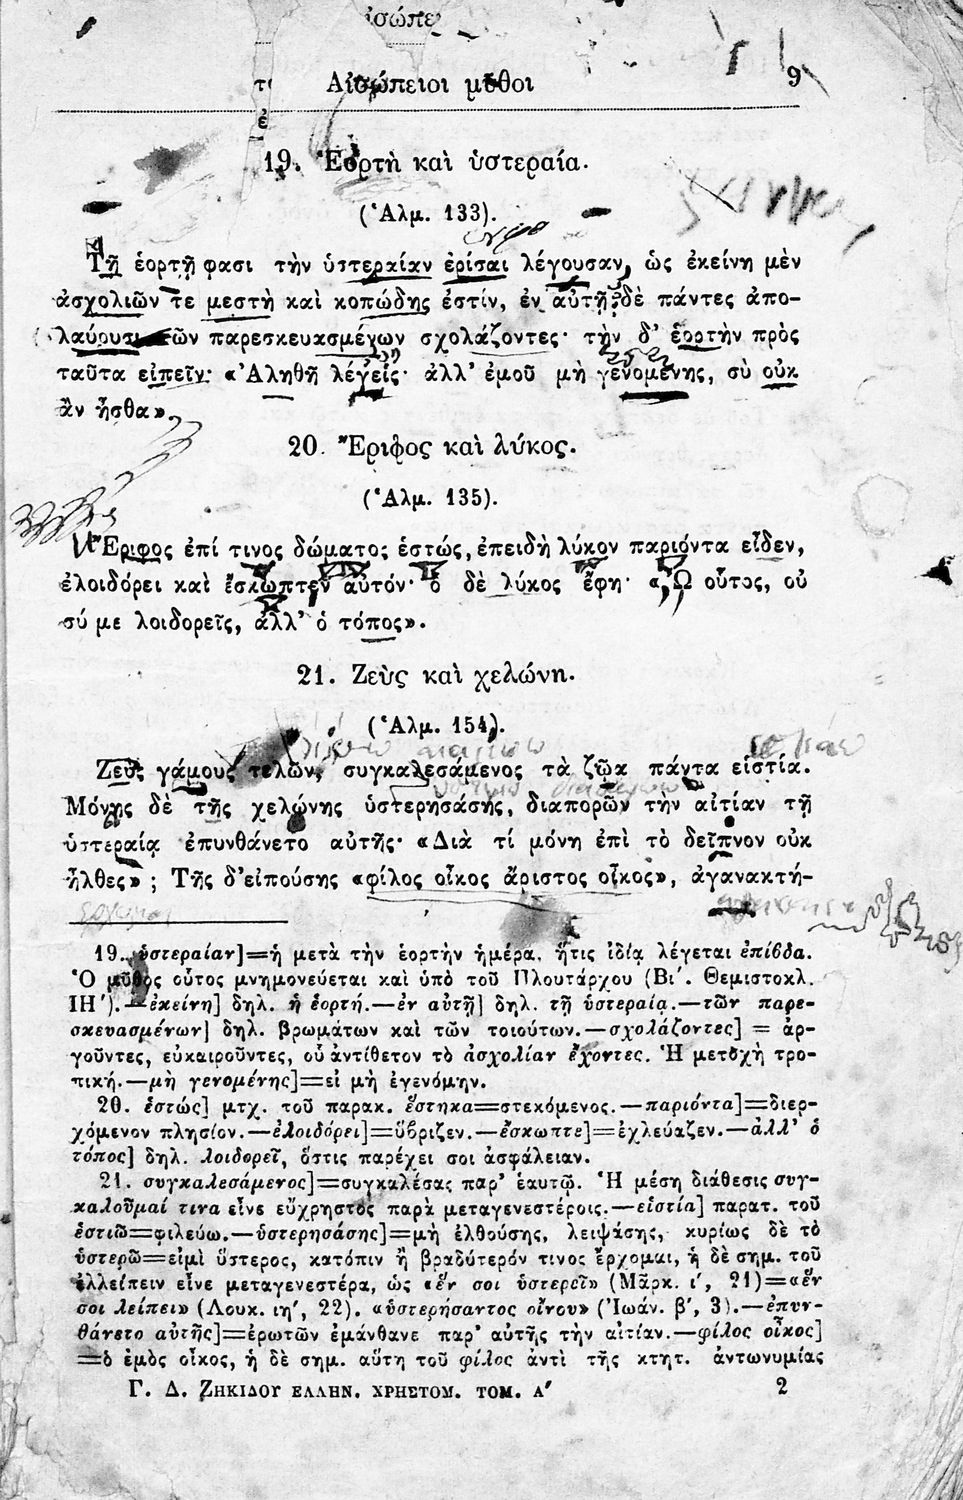 Αἰσώπειοι μῦθοι 9
19. Ἑορτὴ καὶ ὑστεραία.
(Ἁλμ. 133).
Τῇ ἑορτῇ φασι τὴν ὑστεραίαν ἐρίσαι λέγουσαν, ὡς ἐκείνη μὲν
ἀσχολιῶν τε μεστὴ καὶ κοπώδης ἐστίν, ἐν αὐτῇ δὲ πάντες ἀπο-
λαύουσι τῶν παρεσκευασμένων σχολάζοντες· τὴν δ' ἑορτὴν πρὸς
ταῦτα εἰπεῖν· «Ἀληθῆ λέγεις· ἀλλ' ἐμοῦ μὴ γενομένης, σὺ οὐκ
ἂν ἦσθα».
20. Ἔριφος καὶ λύκος.
(Ἁλμ. 135).
Ἔριφος ἐπί τινος δώματος ἑστώς, ἐπειδὴ λύκον παριόντα εἶδεν,
ἐλοιδόρει καὶ ἔσκωπτεν αὐτόν· ὁ δὲ λύκος ἔφη· «Ὦ οὗτος, οὐ
σύ με λοιδορεῖς, ἀλλ' ὁ τόπος».
21. Ζεὺς καὶ χελώνη.
(Ἁλμ. 154).
Ζεὺς γάμους τελῶν, συγκαλεσάμενος τὰ ζῷα πάντα εἱστία.
Μόνης δὲ τῆς χελώνης ὑστερησάσης, διαπορῶν τὴν αἰτίαν τῇ
ὑστεραίᾳ ἐπυνθάνετο αὐτῆς· «Διὰ τί μόνη ἐπὶ τὸ δεῖπνον οὐκ
ἦλθες» ; Τῆς δ'εἰπούσης «φίλος οἶκος ἄριστος οἶκος», ἀγανακτή-
19. ὑστεραίαν]=ἡ μετὰ τὴν ἑορτὴν ἡμέρα, ἥτις ἰδίᾳ λέγεται ἐπίβδα.
Ὁ μῦθος οὗτος μνημονεύεται καὶ ὑπὸ τοῦ Πλουτάρχου (Βι΄. Θεμιστοκλ.
ΙΗ΄).—ἐκείνη] δηλ. ἡ ἑορτή.—ἐν αὐτῇ] δηλ. τῇ ὑστεραίᾳ.—τῶν παρε-
σκευασμένων] δηλ. βρωμάτων καὶ τῶν τοιούτων.—σχολάζοντες] = ἀρ-
γοῦντες, εὐκαιροῦντες, οὗ ἀντίθετον τὸ ἀσχολίαν ἔχοντες. Ἡ μετοχὴ τρο-
πική.—μὴ γενομένης]=εἰ μὴ ἐγενόμην.
20. ἑστώς] μτχ. τοῦ παρακ. ἕστηκα=στεκόμενος.—παριόντα]=διερ-
χόμενον πλησίον.—ἐλοιδόρει]=ὕβριζεν.—ἔσκωπτε]=ἐχλεύαζεν.—ἀλλ' ὁ
τόπος] δηλ. λοιδορεῖ, ὅστις παρέχει σοι ἀσφάλειαν.
21. συγκαλεσάμενος]=συγκαλέσας παρ' ἑαυτῷ. Ἡ μέση διάθεσις συγ-
καλοῦμαί τινα εἶνε εὔχρηστος παρὰ μεταγενεστέροις.—εἱστία] παρατ. τοῦ
ἑστιῶ=φιλεύω.—ὑστερησάσης]=μὴ ἐλθούσης, λειψάσης, κυρίως δὲ τὸ
ὑστερῶ=εἰμὶ ὕστερος, κατόπιν ἢ βραδύτερόν τινος ἔρχομαι, ἡ δὲ σημ. τοῦ
ἐλλείπειν εἶνε μεταγενεστέρα, ὡς «ἕν σοι ὑστερεῖ» (Μᾶρκ. ι΄, 21)=«ἕν
σοι λείπει» (Λουκ. ιη΄, 22). «ὑστερήσαντος οἴνου» (Ἰωάν. β΄, 3).—ἐπυν-
θάνετο αὐτῆς]=ἐρωτῶν ἐμάνθανε παρ' αὐτῆς τὴν αἰτίαν.—φίλος οἶκος]
=ὁ ἐμὸς οἶκος, ἡ δὲ σημ. αὕτη τοῦ φίλος ἀντὶ τῆς κτητ. ἀντωνυμίας
Γ. Δ. ΖΗΚΙΔΟΥ ΕΛΛΗΝ. ΧΡΗΣΤΟΜ. ΤΟΜ. Α΄ 2